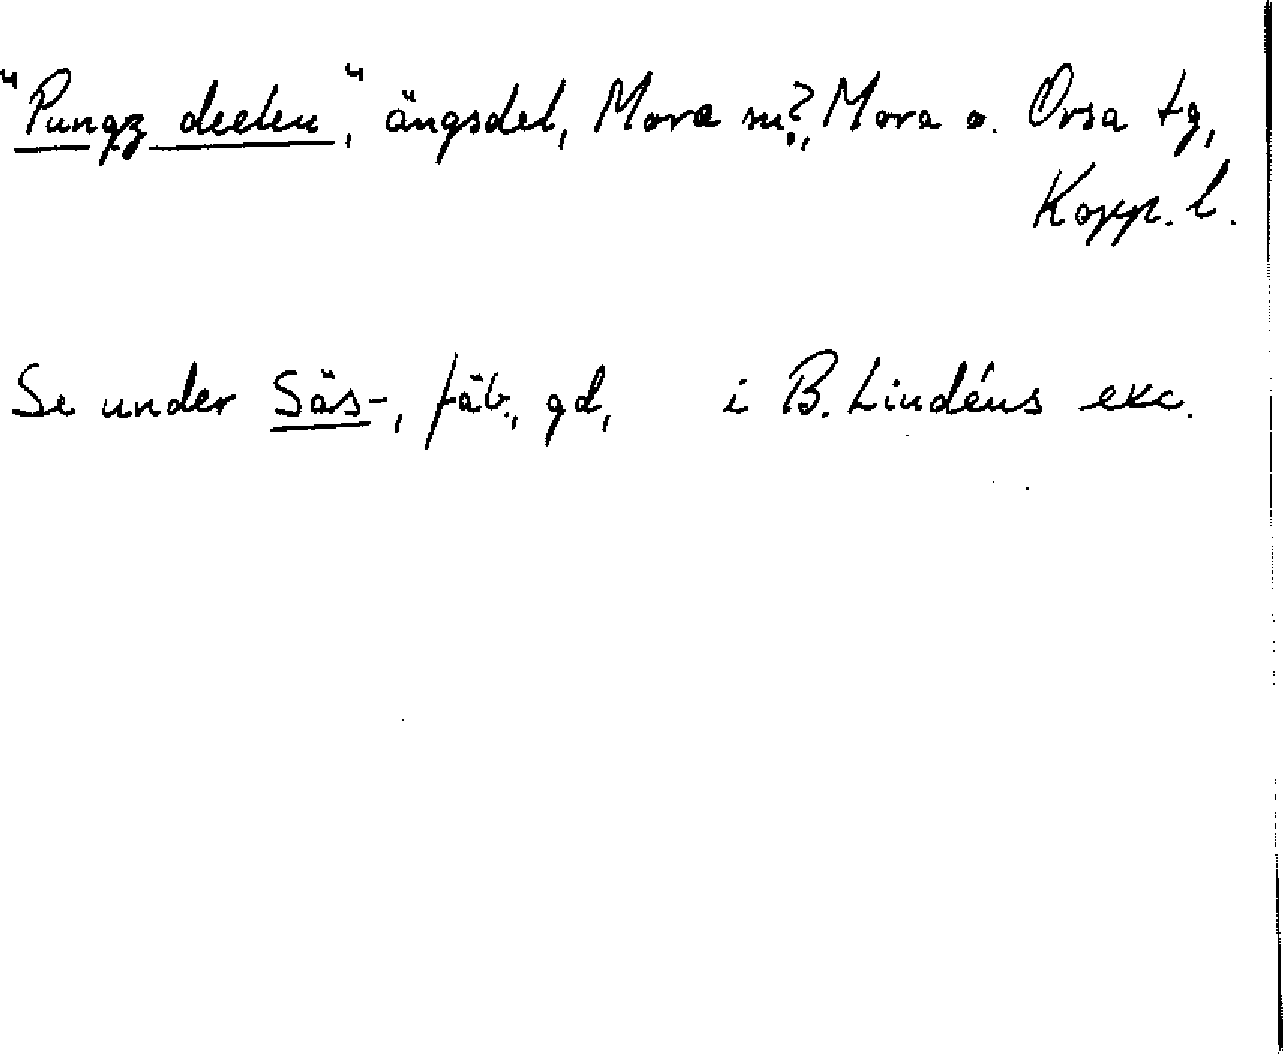 "Pungz deelen", ängsdel, Mora sn?, Mora o. Orsa tg,
Kopp. l.
Se under Säs-, fäb., gd, i B. Lindéns exc.